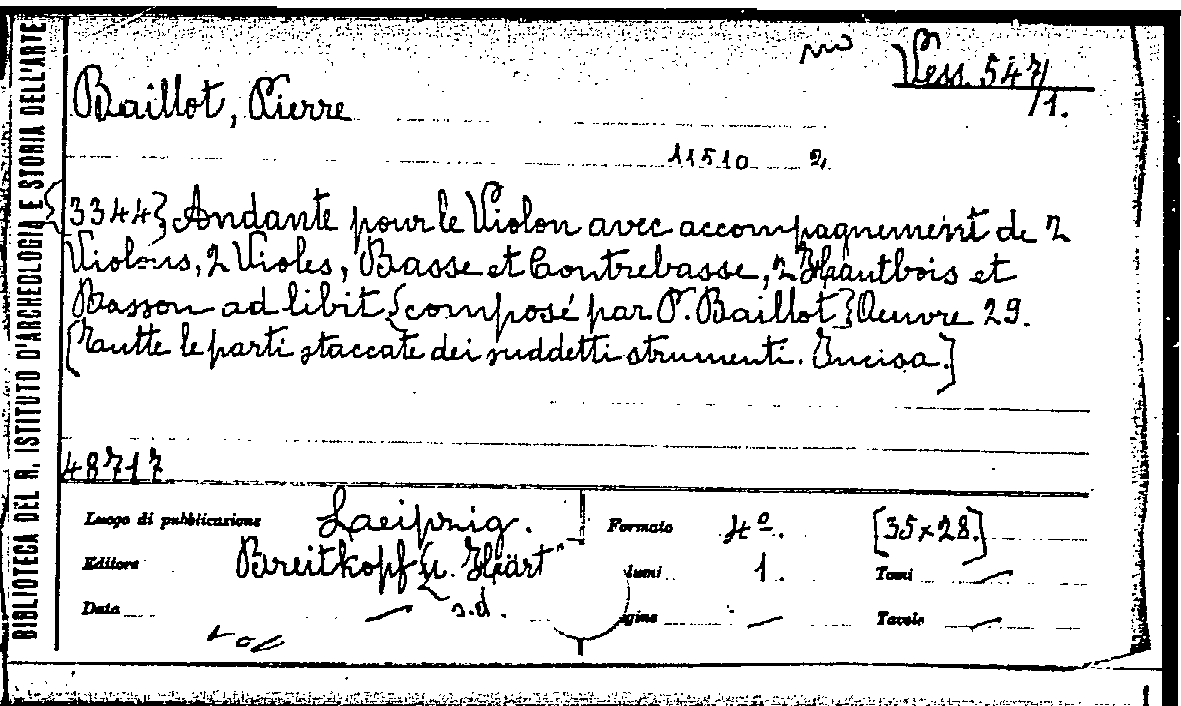 BIBLIOTECA DEL R. ISTITUTO D'ARCHEOLOGIA E STORIA DELL'ARTE
Vess. 547/1.
Baillot, Pierre
11510 2,
{3344} Andante pour le Violon avec accompagnement de 2
Violons, 2 Violes, Basse et Contrebasse, 2 Hautbois et
Basson ad libit {composé par P. Baillot} Oeuvre 29.
[le parti staccate dei suddetti strumenti. Incisa.]
48717
Luogo di pubblicazione Laeipnig. Formato 4º. [35x28.]
Editore Breitkopf u. Härt lumi 1. Tomi —
Data — s.d. gine — Tavole —